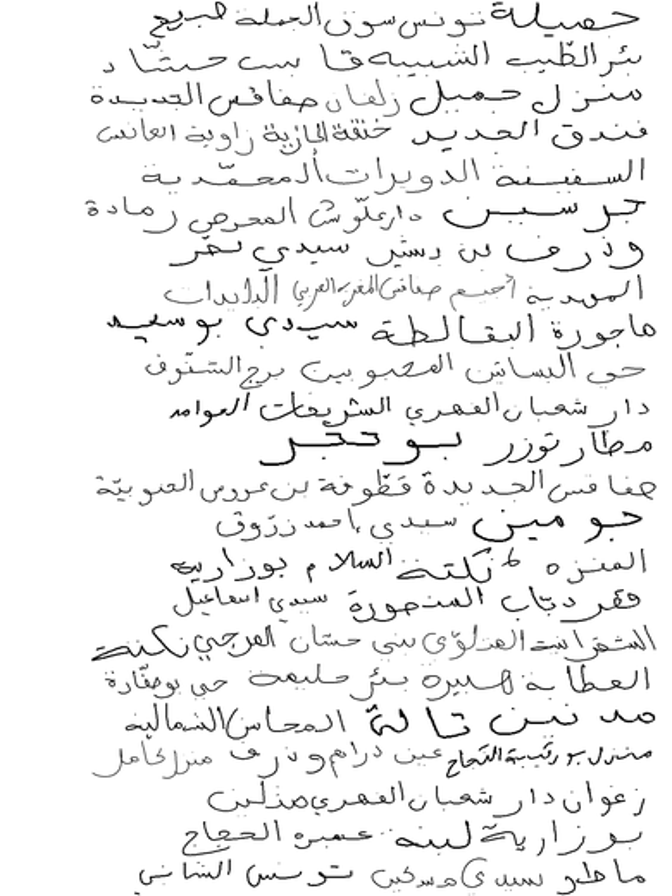 حصيلة تونس سوق الجملة
بئر الطيب الشبيبة قابس حشاد
منزل جميل زلفان صفاقس الجديدة
فندق الجديد خنقة الجازية زاوية العانس
السفينة الدويرات المحمّدية
جرسين دار علّوش المحرص رمادة
وذرف بن بشير سيدي نصر
المهدية أجيم صفاقس المغرب العربي الذايدات
ماجورة البقالطة سيدي بوسعيد
حي البساتين المحبوبين برج الشنّوف
دار شعبان الفهري الشريفات العوامد
مطار توزر بوحجر
صفاقس الجديدة قطّوفة بن عروس الجنوبيّة
جومين سيدي احمد زرّوق
المنزه 6 نكتة السلام بوزارية
قصر دبّاب المنصورة سيدي اسماعيل
الشقرانية بني حسّان الفرجي نكنة
العطاية هبيرة بئر حليمة حي بوصفّارة
مدنين تالة المحاسن الشمالية
منزل بورقيبة النجاح عين درام وذرف منزل كامل
زغوان دار شعبان الفهري
بوزارية لبنه عميرة الحجاج
ماطر سيدي مسكين تونس